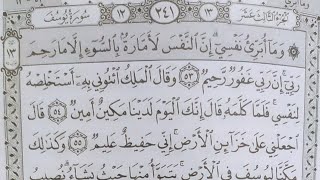 الجزء الثالث عشر ١٣ ٢٤١ ١٢ سورة يوسف
۞ وَمَآ أُبَرِّئُ نَفْسِىٓ إِنَّ ٱلنَّفْسَ لَأَمَّارَةٌۢ بِٱلسُّوٓءِ إِلَّا مَا رَحِمَ
رَبِّىٓ إِنَّ رَبِّى غَفُورٌ رَّحِيمٌ ٥٣ وَقَالَ ٱلْمَلِكُ ٱئْتُونِى بِهِۦٓ أَسْتَخْلِصْهُ
لِنَفْسِى فَلَمَّا كَلَّمَهُۥ قَالَ إِنَّكَ ٱلْيَوْمَ لَدَيْنَا مَكِينٌ أَمِينٌ ٥٤ قَالَ
ٱجْعَلْنِى عَلَىٰ خَزَآئِنِ ٱلْأَرْضِ إِنِّى حَفِيظٌ عَلِيمٌ ٥٥ وَكَذَٰلِكَ
مَكَّنَّا لِيُوسُفَ فِى ٱلْأَرْضِ يَتَبَوَّأُ مِنْهَا حَيْثُ يَشَآءُ نُصِيبُ